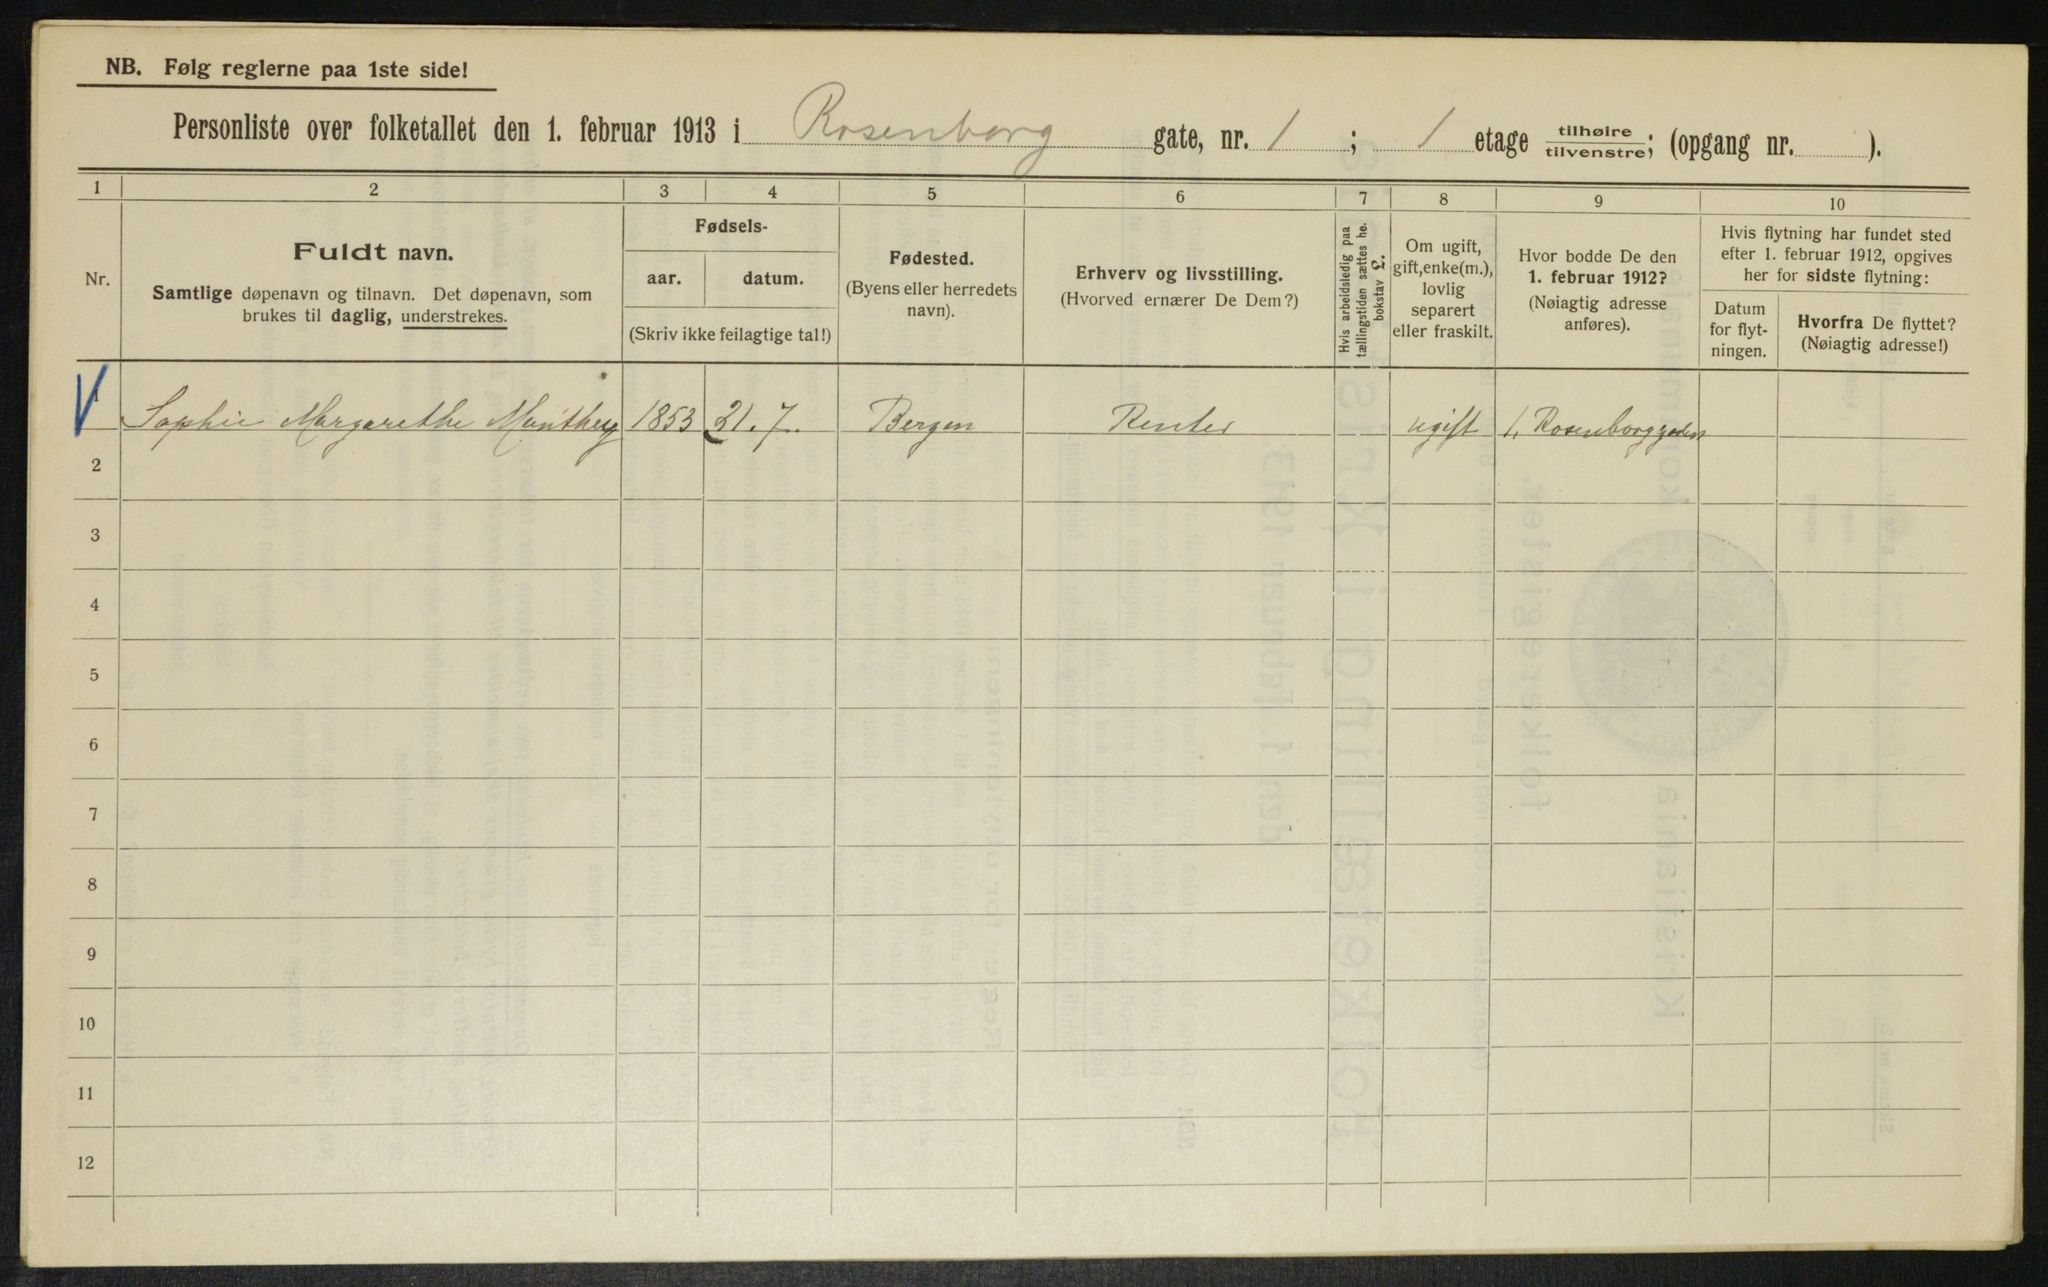 NB. Følg reglerne paa 1ste side!
Personliste over folketallet den 1. februar 1913 i Rosenborg gate, nr. 1 ; 1 etage tilhøire/tilvenstre; (opgang nr. ).
1 2 3 4 5 6 7 8 9 10
Nr.
Fuldt navn.
Samtlige døpenavn og tilnavn. Det døpenavn, som
brukes til daglig, understrekes.
Fødsels-
aar. datum.
(Skriv ikke feilagtige tal!)
Fødested.
(Byens eller herredets
navn).
Erhverv og livsstilling.
(Hvorved ernærer De Dem?)
Hvis arbeidsledig paa
tællingstiden sættes he.
bokstav L.
Om ugift,
gift, enke(m.),
lovlig
separert
eller fraskilt.
Hvor bodde De den
1. februar 1912?
(Nøiagtig adresse
anføres).
Hvis flytning har fundet sted
efter 1. februar 1912, opgives
her for sidste flytning:
Datum
for flyt-
ningen.
Hvorfra De flyttet?
(Nøiagtig adresse!)
1 Sophie Margarethe Manthey 1853 21.7. Bergen Renter ugift 1, Rosenborggaden
2
3
4
5
6
7
8
9
10
11
12